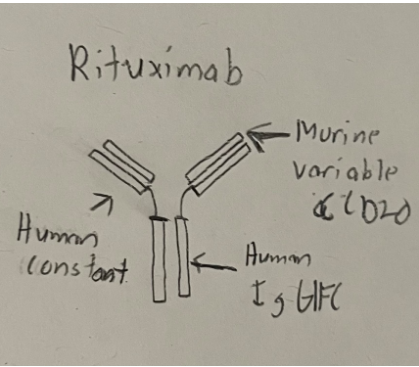 Rituximab
Murine
variable
αCD20
Human
constant
Human
IgG1FC